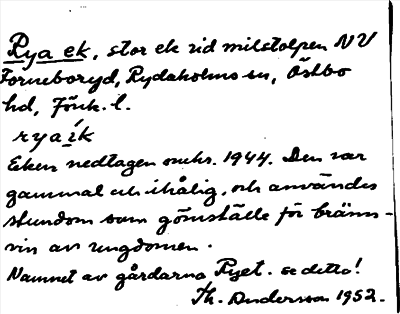 Rya ek, stor ek vid milstolpen NV
Torneboryd, Rydaholms sn, Östbo
hd, Jönk. l.
ryaík
Eken nedtagen omkr. 1944. Den var
gammal och ihålig, och användes
stundom som gömställe för bränn-
vin av ungdomen.
Namnet av gårdarna Ryet. se detta!
Th. Andersson 1952.